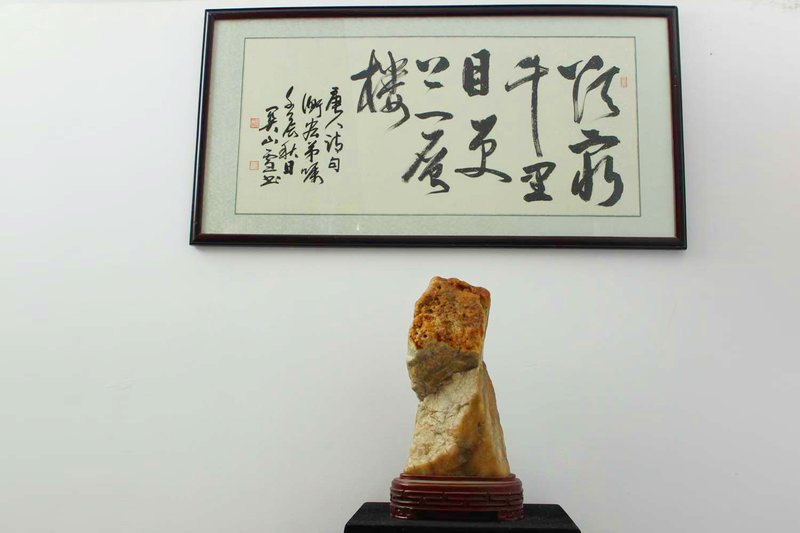 欲穷
千里
目更
上一层
楼
唐人诗句
衡宏弟嘱
壬辰秋日
吴山雪书